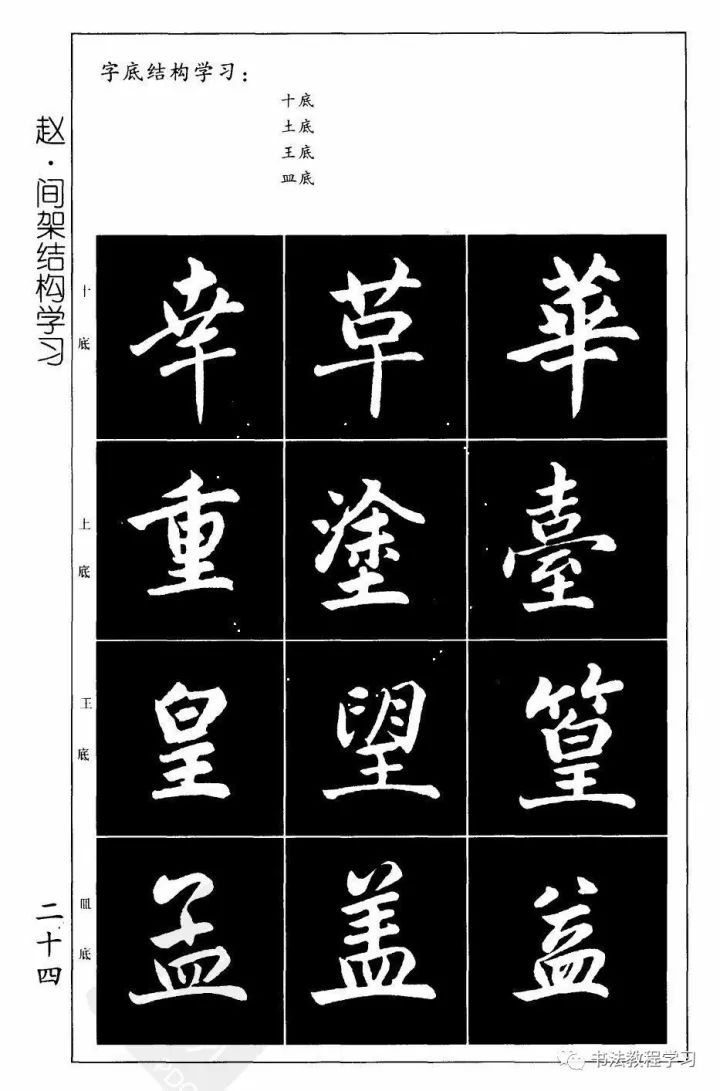 字底结构学习：
十底
土底
王底
皿底
赵·间架结构学习
十底
幸草華
土底
重塗臺
王底
皇望篁
皿底
孟盖益
二十四
书法教程学习